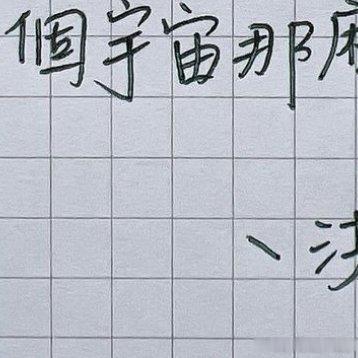 個宇宙那麼
、